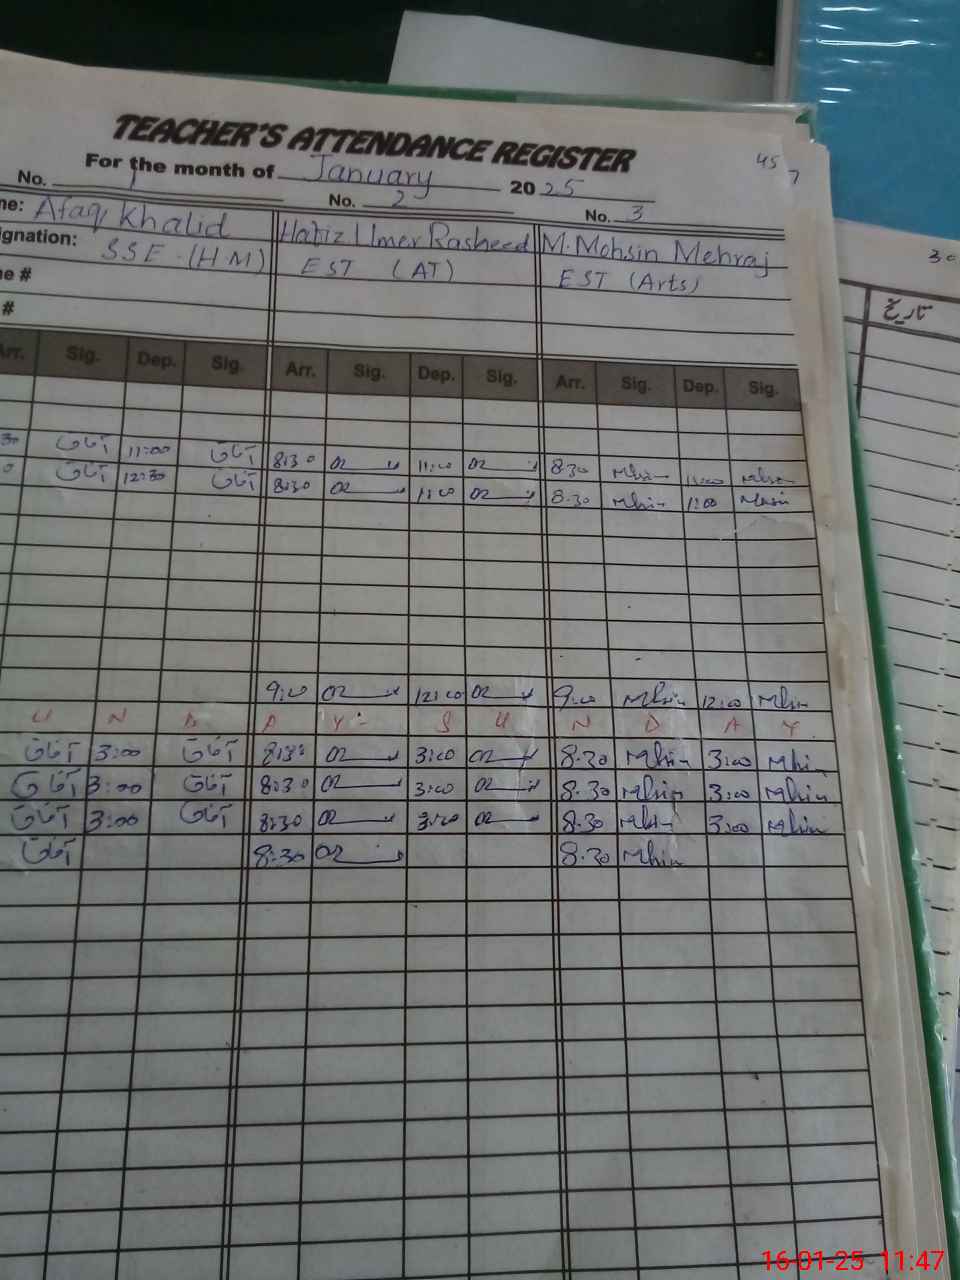 TEACHER'S ATTENDANCE REGISTER
45 7
For the month of January 2025
No. 1 No. 2 No. 3
me: Afaq Khalid Hafiz Umer Rasheed M. Mohsin Mehraj
ignation: SSE (HM) EST (AT) EST (Arts)
ne #
#
30
تاریخ
Arr. Sig. Dep. Sig. Arr. Sig. Dep. Sig. Arr. Sig. Dep. Sig.
30 آفاق 11:00 آفاق 8:30 11:00 8:30 Mhsin 11:00 Mhsin
0 آفاق 12:30 آفاق 8:30 11:00 8:30 Mhsin 11:00 Mhsin
9:00 12:00 9:00 Mhsin 12:00 Mhsin
U N D A Y :- S U N D A Y
آفاق 3:00 آفاق 8:30 3:00 8:30 Mhsin 3:00 Mhsin
آفاق 3:00 آفاق 8:30 3:00 8:30 Mhsin 3:00 Mhsin
آفاق 3:00 آفاق 8:30 3:00 8:30 Mhsin 3:00 Mhsin
آفاق 8:30 8:30 Mhsin
16-01-25 11:47